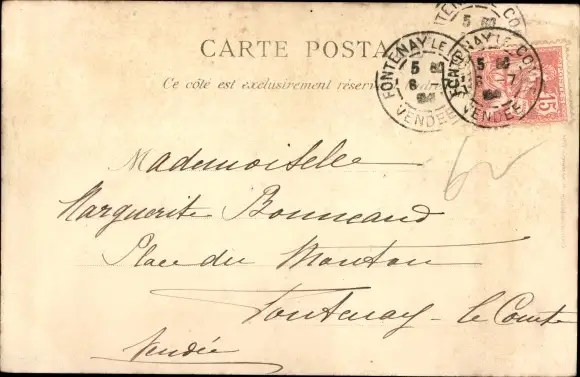 CARTE POSTA
Ce côté est exclusivement réserv
FONTENAY LE COMTE
5
6
VENDÉE
FONTENAY LE COMTE
5
VENDÉE
15
Mademoiselle
Marguerite Bonneaud
Place du Mouton
Fontenay-le Comte
Vendée